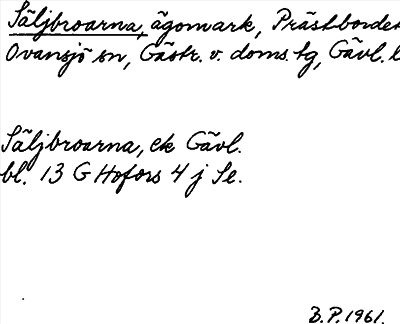 Säljbroarna, ägomark, Prästbordet
Ovansjö sn, Gästr. v. doms.tg, Gävl. l
Säljbroarna, ek Gävl.
bl. 13 G Hofors 4 j Se.
B.P. 1961.